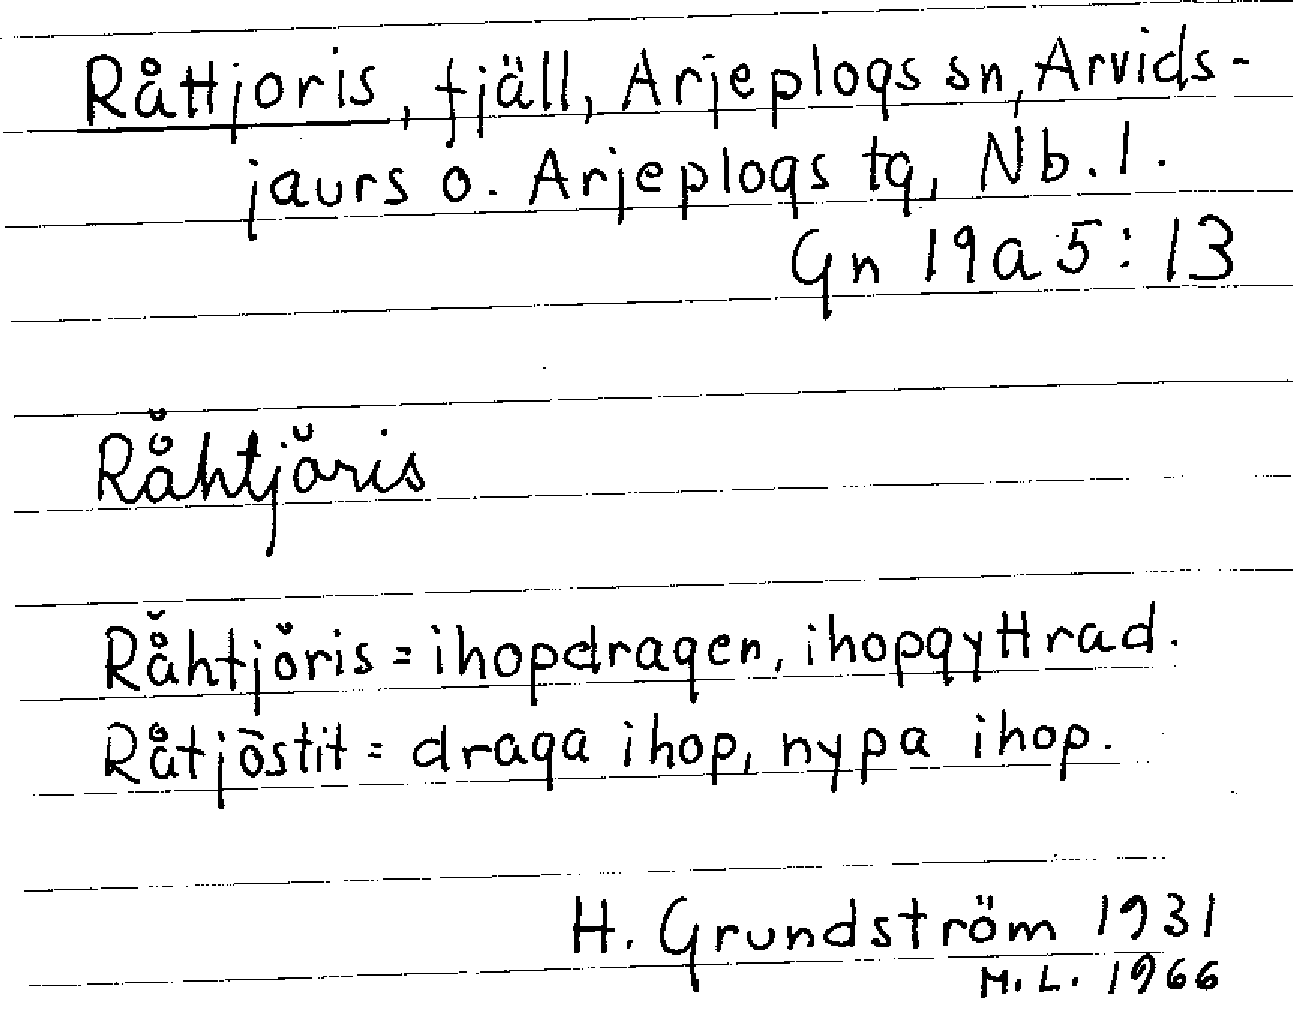 Råttjoris, fjäll, Arjeplogs sn, Arvids-
jaurs o. Arjeplogs tg, Nb. l.
Gn 19a5:13
Rå̆htjŏris
Rå̆htjŏris = ihopdragen, ihopgyttrad.
Råtjōstit = draga ihop, nypa ihop.
H. Grundström 1931
M. L. 1966